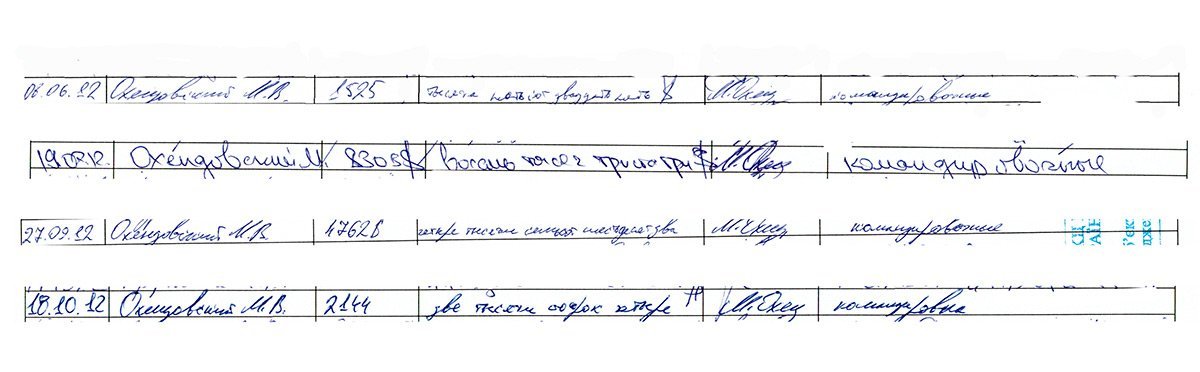 08.06.12 Охендовский М.В. 1525 тысяча пятьсот двадцать пять $ командировочные
19.07.12. Охендовский М. 8303$ восемь тысяч триста три $ командировочные
27.09.12 Охендовский М.В. 4762$ четыре тысячи семьсот шестьдесят два командировочные
18.10.12 Охендовский М.В. 2144 две тысячи сорок четыре командировка